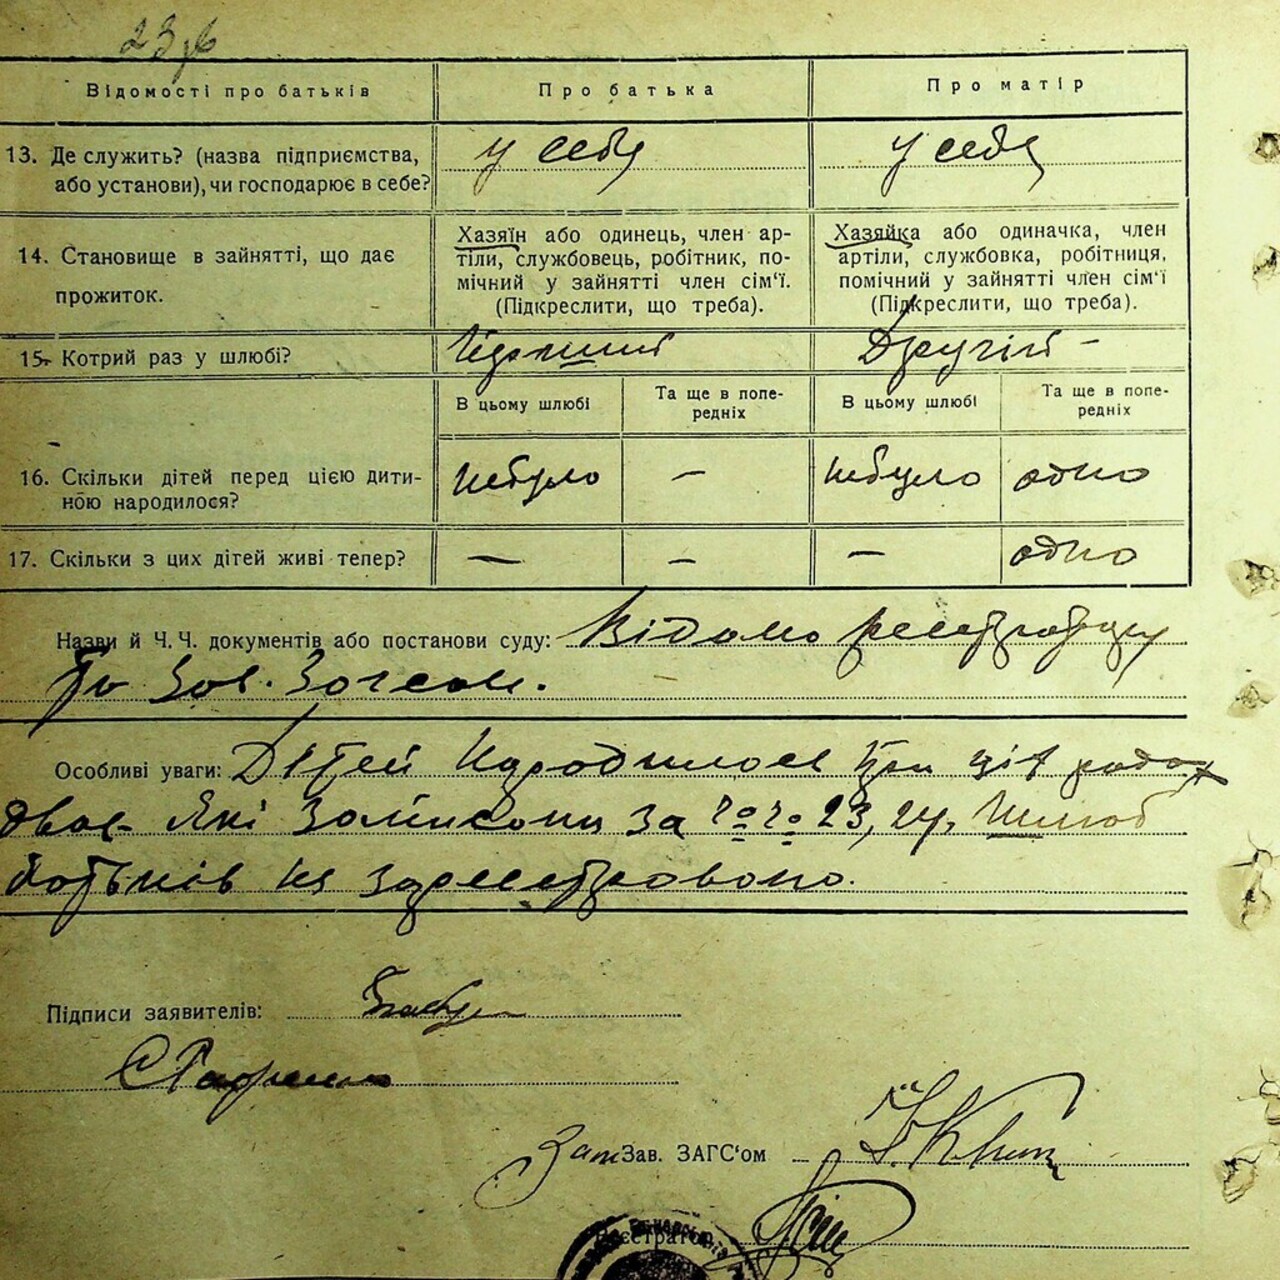 23
Відомості про батьків Про батька Про матір
13. Де служить? (назва підприємства, або установи), чи господарює в себе? у себя у себя
14. Становище в зайнятті, що дає прожиток.
Хазяїн або одинець, член ар-
тіли, службовець, робітник, по-
мічний у зайнятті член сім'ї.
(Підкреслити, що треба).
Хазяйка або одиначка, член
артіли, службовка, робітниця,
помічний у зайнятті член сім'ї
(Підкреслити, що треба).
15. Котрий раз у шлюбі? Перший Другій -
В цьому шлюбі Та ще в попе-
редніх В цьому шлюбі Та ще в попе-
редніх
16. Скільки дітей перед цією дити-
ною народилося? небуло - небуло одно
17. Скільки з цих дітей живі тепер? - - - одно
Назви й Ч. Ч. документів або постанови суду: Відомо реєстратору
та Зав. Загсом.
Особливі уваги: Дітей народилося при ціх родах
двоє які записани за №№ 23, 24. Шлюб
батьків не зареєстровано.
Підписи заявителів:
Зав. ЗАГС'ом
Реєстратор